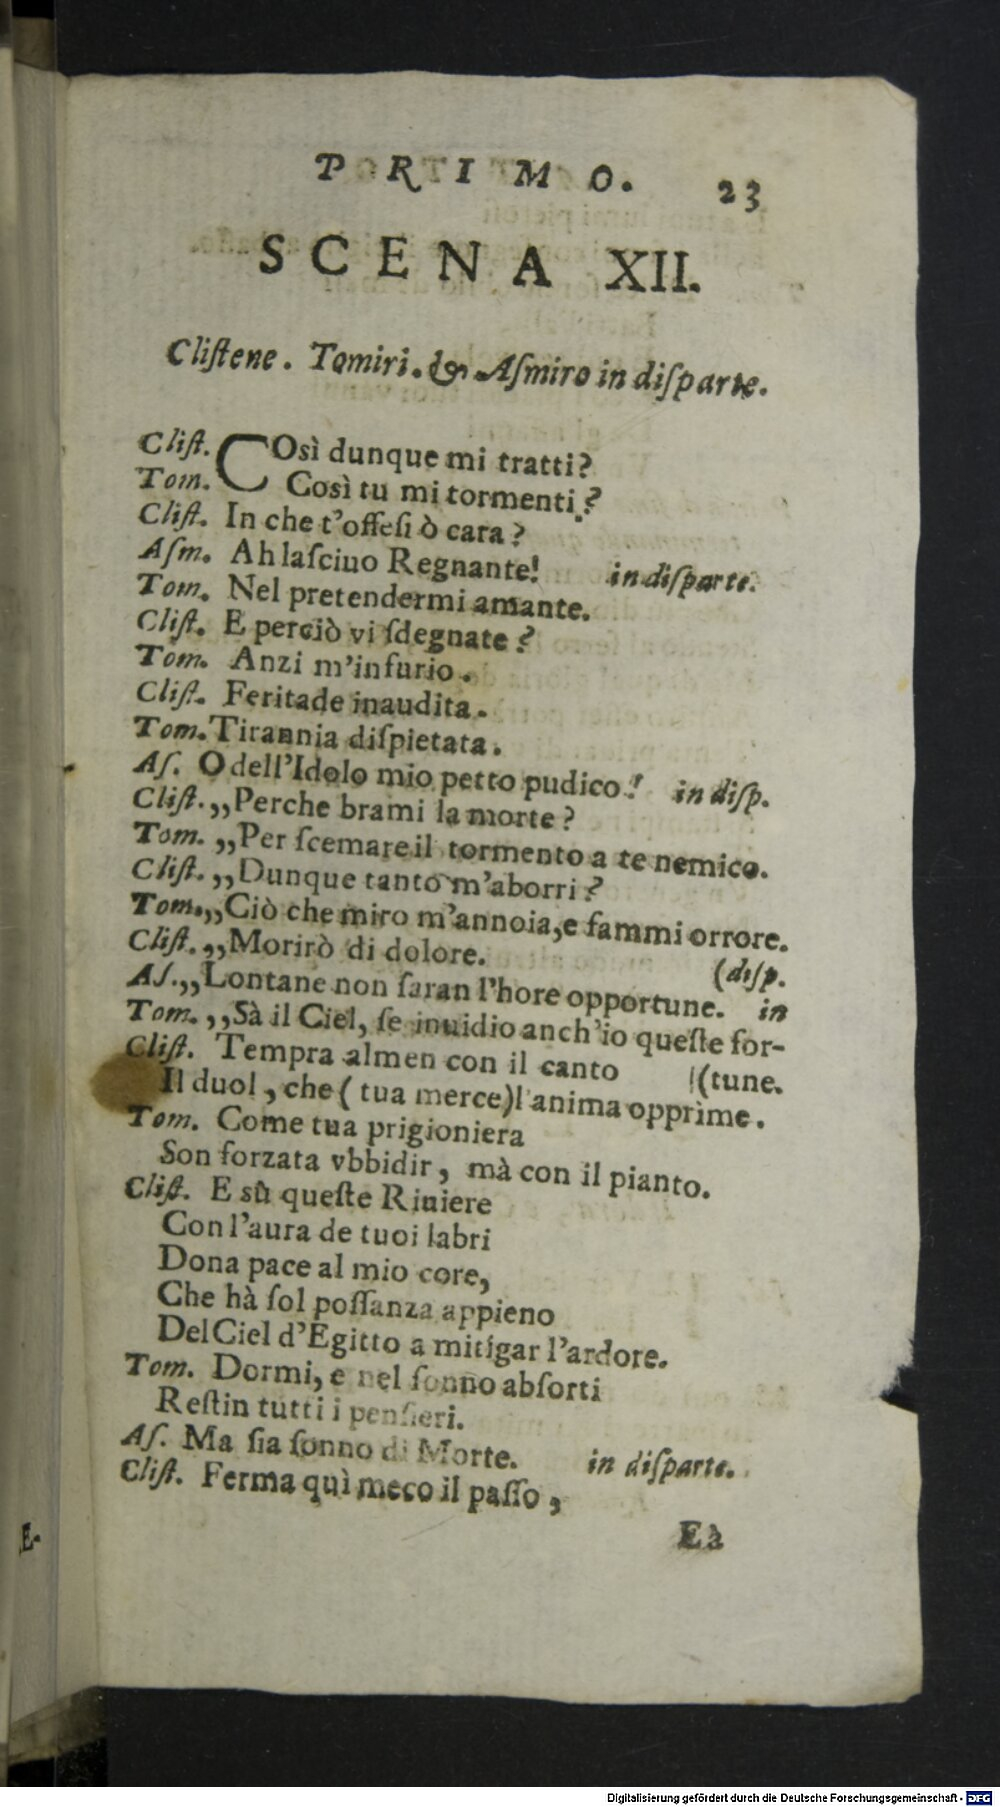 PRIMO. 23
SCENA XII.
Cliſtene. Tomiri. & Aſmiro in diſparte.
Cliſt. COsì dunque mi tratti?
Tom. Così tu mi tormenti?
Cliſt. In che t'offeſi ò cara?
Aſm. Ah laſciuo Regnante! in diſparte.
Tom. Nel pretendermi amante.
Cliſt. E perciò vi ſdegnate?
Tom. Anzi m'infurio.
Cliſt. Feritade inaudita.
Tom. Tirannia diſpietata.
Aſ. O dell'Idolo mio petto pudico! in diſp.
Cliſt. ,,Perche brami la morte?
Tom. ,,Per ſcemare il tormento a te nemico.
Cliſt. ,,Dunque tanto m'aborri?
Tom. ,,Ciò che miro m'annoia, e fammi orrore.
Cliſt. ,,Morirò di dolore. (diſp.
Aſ. ,,Lontane non ſaran l'hore opportune. in
Tom. ,,Sà il Ciel, ſe inuidio anch'io queſte for-
Cliſt. Tempra almen con il canto !(tune.
Il duol, che (tua merce) l'anima opprime.
Tom. Come tua prigioniera
Son forzata vbbidir, mà con il pianto.
Cliſt. E sù queſte Riuiere
Con l'aura de tuoi labri
Dona pace al mio core,
Che hà ſol poſſanza appieno
Del Ciel d'Egitto a mitigar l'ardore.
Tom. Dormi, e nel ſonno abſorti
Reſtin tutti i penſieri.
Aſ. Ma ſia ſonno di Morte. in diſparte.
Cliſt. Ferma quì meco il paſſo,
Eà
E-
Digitalisierung gefördert durch die Deutsche Forschungsgemeinschaft - DFG